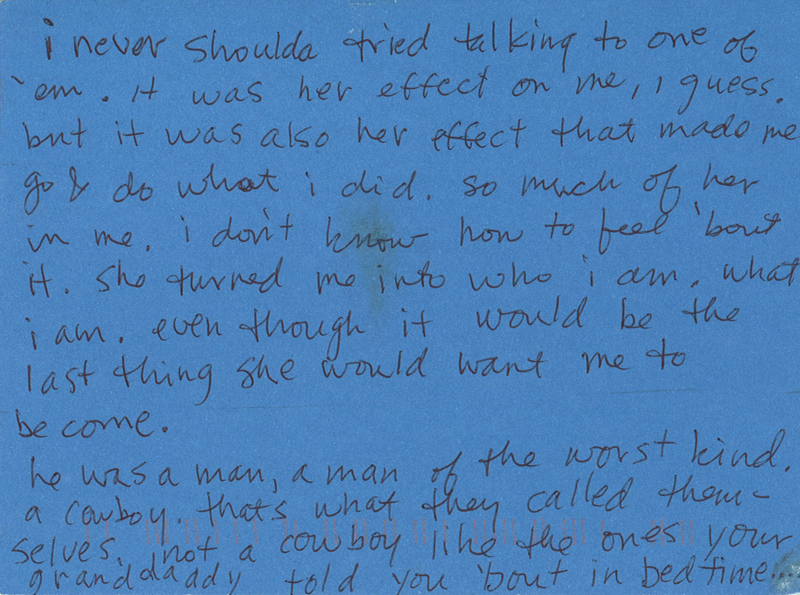 i never shoulda tried talking to one of
'em. it was her effect on me, i guess.
but it was also her effect that made me
go & do what i did. so much of her
in me. i don't know how to feel 'bout
it. she turned me into who i am. what
i am. even though it would be the
last thing she would want me to
become.
he was a man, a man of the worst kind.
a cowboy. thats what they called them-
selves. not a cowboy like the ones your
granddaaddy told you 'bout in bedtime...